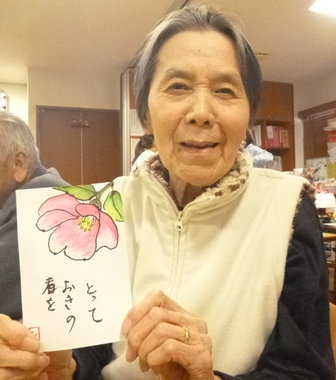 とって
おきの
春を